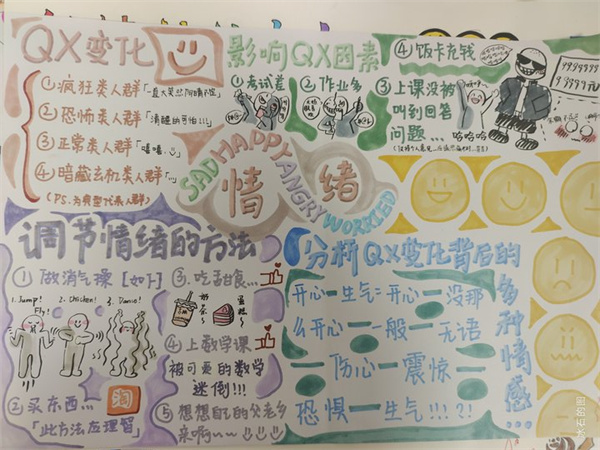 QX变化
①疯狂类人群
②恐怖类人群「清醒的可怕!!!」
③正常类人群「嘻嘻.
④暗藏玄机类人群「...
(PS.为典型代表人群)
影响QX因素
①考试差
②作业多
③上课没被
叫到回答
问题...
哈哈哈
④饭卡充钱
SAD HAPPY ANGRY WORRIED
情绪
调节情绪的方法
①做消气操[如下]
1.Jump!
Fly!
2.Chicken!
3.Dance!
②买东西...
淘
「此方法应理智」
③.吃甜食...
奶茶~
蛋糕~
④上数学课
被可爱的数学
迷倒!!!
⑤想想自己的父老乡
亲啊~~
分析QX变化背后的
多种情感...
开心—生气=开心—没那
么开心—一般—无语
—伤心—震惊—
恐惧—生气!!!?!
水石的图